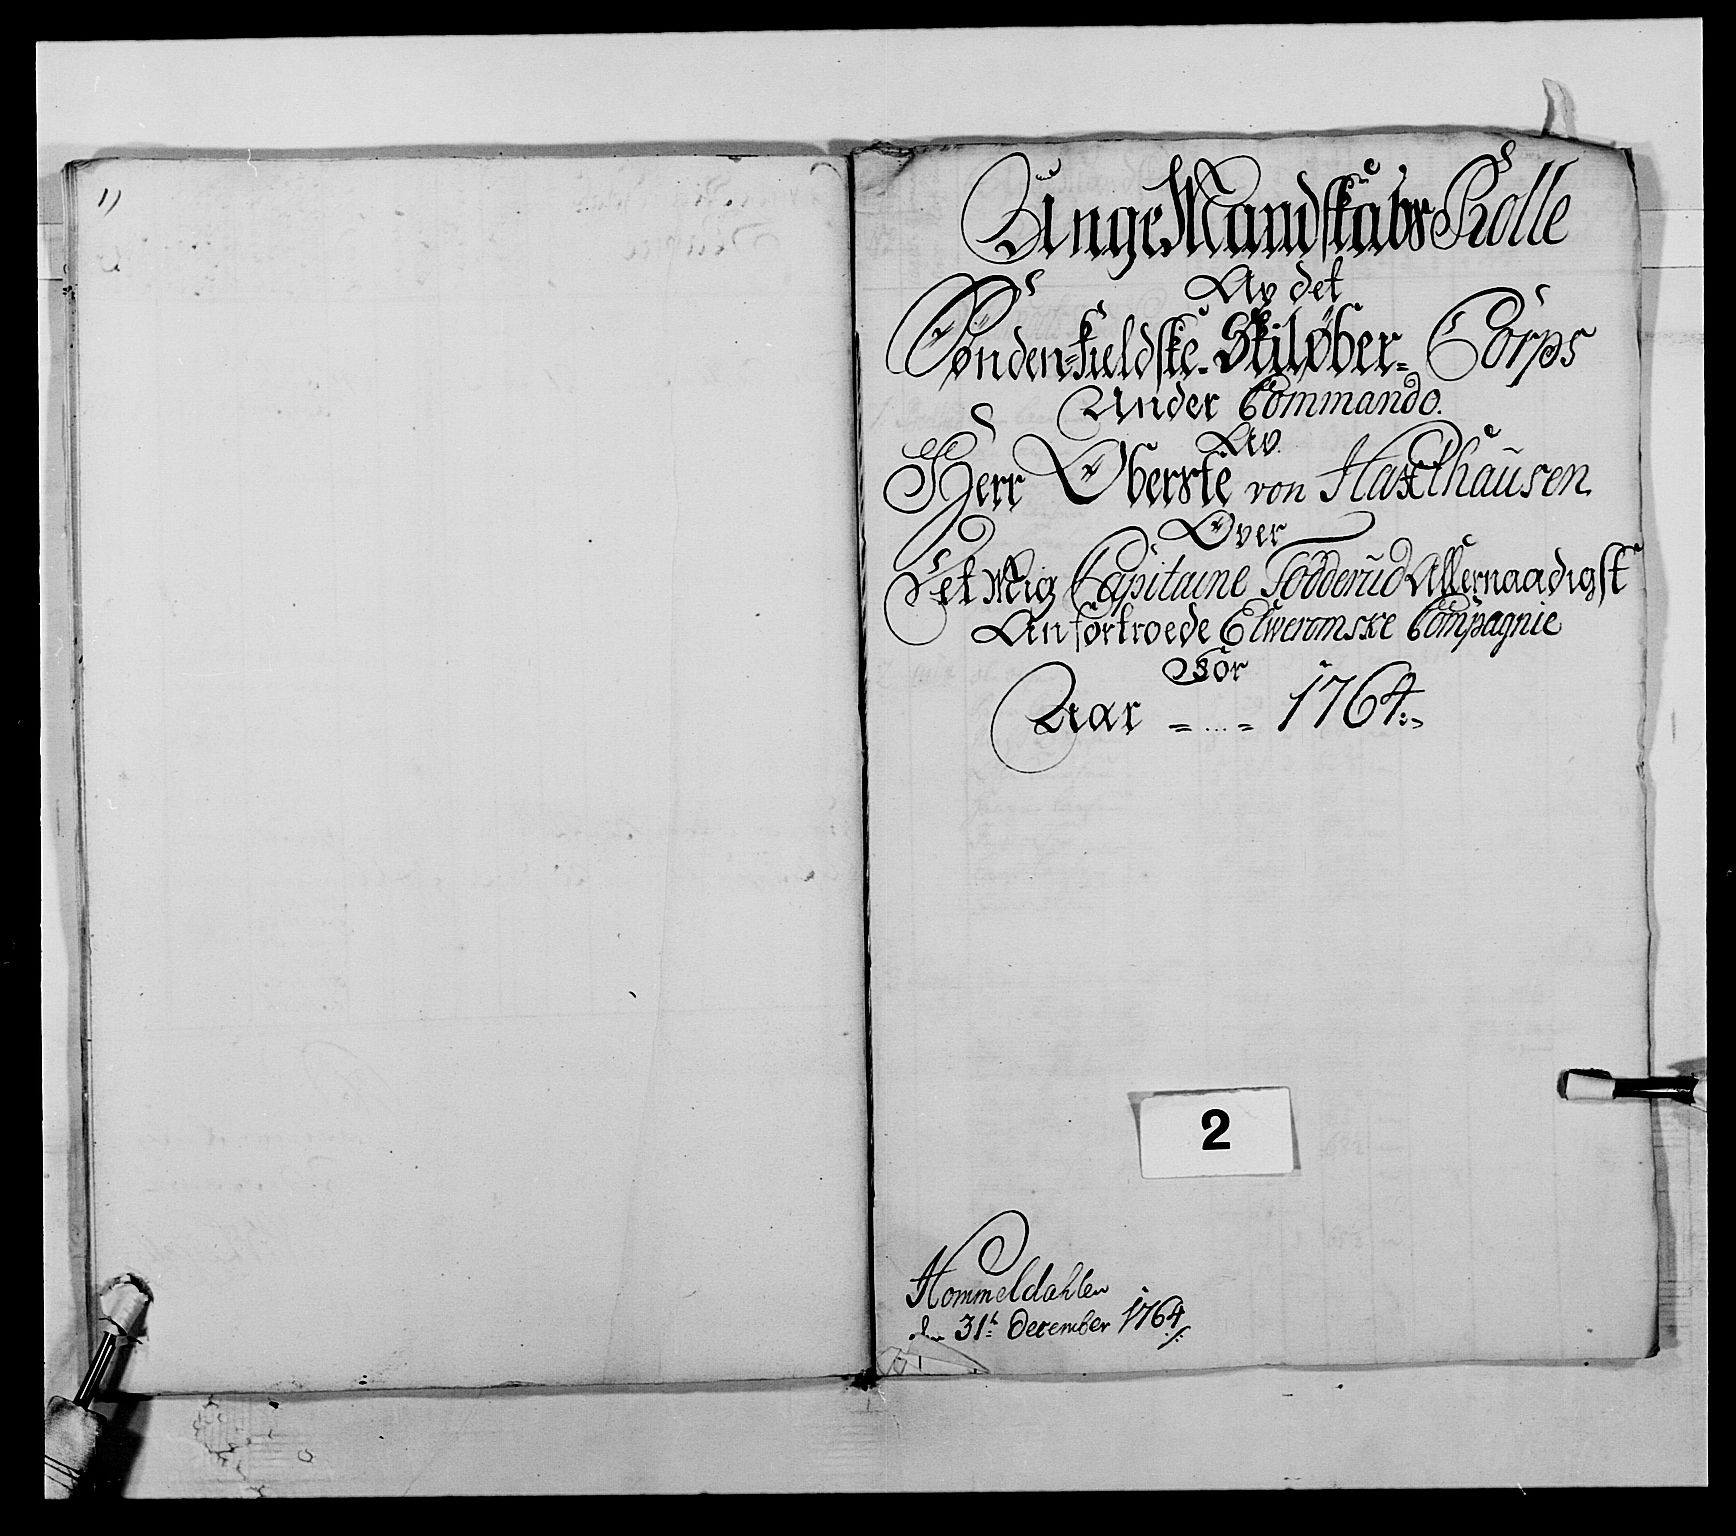 1)
Unge Mandskabs Rolle
Av det
Sønden=fieldske= Skiløber= Corps
Under Commando.
Av.
Herr Oberste von Haxthausen
Over
Det Mig Capitaine Todderud Allernaadigst
Anfortroede Elweromske Compagnie
For
Aar =...= 1764.
2
Hommeldahlen
den 31t December 1764